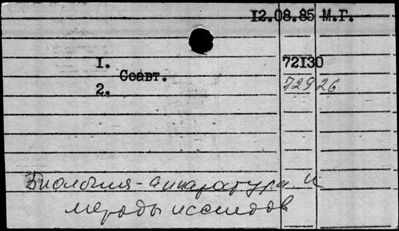 12.08.85 М.Г.
1. 72130
Соавт. 72926
2.
Биология - аппаратура и
методы исследов